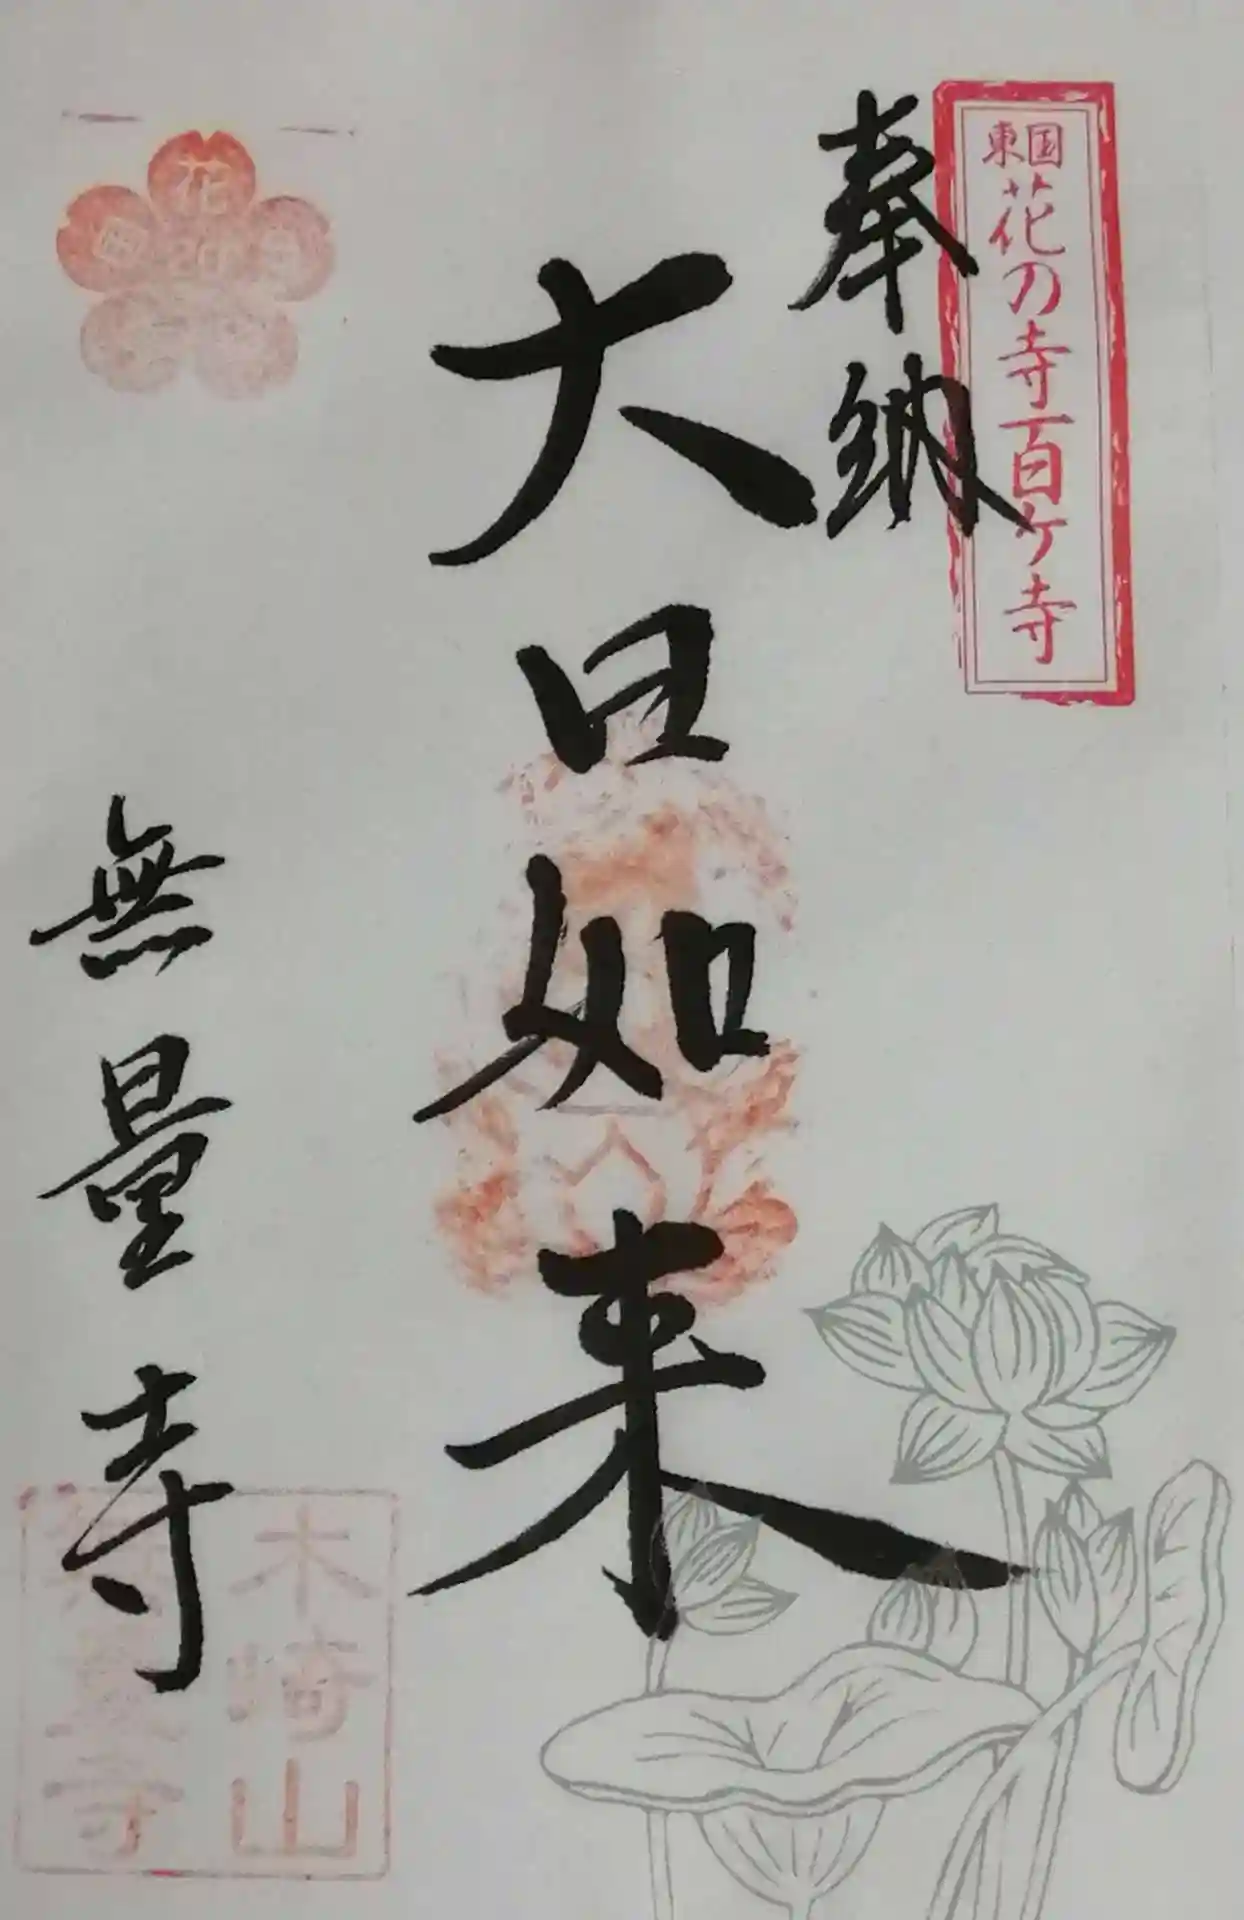 東国花の寺百ヶ寺
奉納
大日如来
無量寺
花
木崎山
無量寺